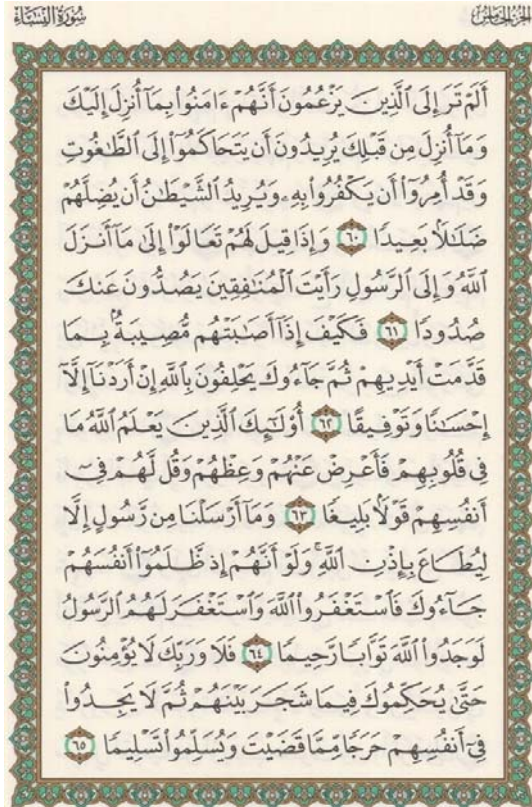 الجزء الخامس
سورة النساء
أَلَمْ تَرَ إِلَى ٱلَّذِينَ يَزْعُمُونَ أَنَّهُمْ ءَامَنُوا۟ بِمَآ أُنزِلَ إِلَيْكَ
وَمَآ أُنزِلَ مِن قَبْلِكَ يُرِيدُونَ أَن يَتَحَاكَمُوٓا۟ إِلَى ٱلطَّٰغُوتِ
وَقَدْ أُمِرُوٓا۟ أَن يَكْفُرُوا۟ بِهِۦ وَيُرِيدُ ٱلشَّيْطَٰنُ أَن يُضِلَّهُمْ
ضَلَٰلًۢا بَعِيدًا ٦٠ وَإِذَا قِيلَ لَهُمْ تَعَالَوْا۟ إِلَىٰ مَآ أَنزَلَ
ٱللَّهُ وَإِلَى ٱلرَّسُولِ رَأَيْتَ ٱلْمُنَٰفِقِينَ يَصُدُّونَ عَنكَ
صُدُودًا ٦١ فَكَيْفَ إِذَآ أَصَٰبَتْهُم مُّصِيبَةٌۢ بِمَا
قَدَّمَتْ أَيْدِيهِمْ ثُمَّ جَآءُوكَ يَحْلِفُونَ بِٱللَّهِ إِنْ أَرَدْنَآ إِلَّآ
إِحْسَٰنًا وَتَوْفِيقًا ٦٢ أُو۟لَٰٓئِكَ ٱلَّذِينَ يَعْلَمُ ٱللَّهُ مَا
فِى قُلُوبِهِمْ فَأَعْرِضْ عَنْهُمْ وَعِظْهُمْ وَقُل لَّهُمْ فِىٓ
أَنفُسِهِمْ قَوْلًۢا بَلِيغًا ٦٣ وَمَآ أَرْسَلْنَا مِن رَّسُولٍ إِلَّا
لِيُطَاعَ بِإِذْنِ ٱللَّهِ ۚ وَلَوْ أَنَّهُمْ إِذ ظَّلَمُوٓا۟ أَنفُسَهُمْ
جَآءُوكَ فَٱسْتَغْفَرُوا۟ ٱللَّهَ وَٱسْتَغْفَرَ لَهُمُ ٱلرَّسُولُ
لَوَجَدُوا۟ ٱللَّهَ تَوَّابًا رَّحِيمًا ٦٤ فَلَا وَرَبِّكَ لَا يُؤْمِنُونَ
حَتَّىٰ يُحَكِّمُوكَ فِيمَا شَجَرَ بَيْنَهُمْ ثُمَّ لَا يَجِدُوا۟
فِىٓ أَنفُسِهِمْ حَرَجًا مِّمَّا قَضَيْتَ وَيُسَلِّمُوا۟ تَسْلِيمًا ٦٥